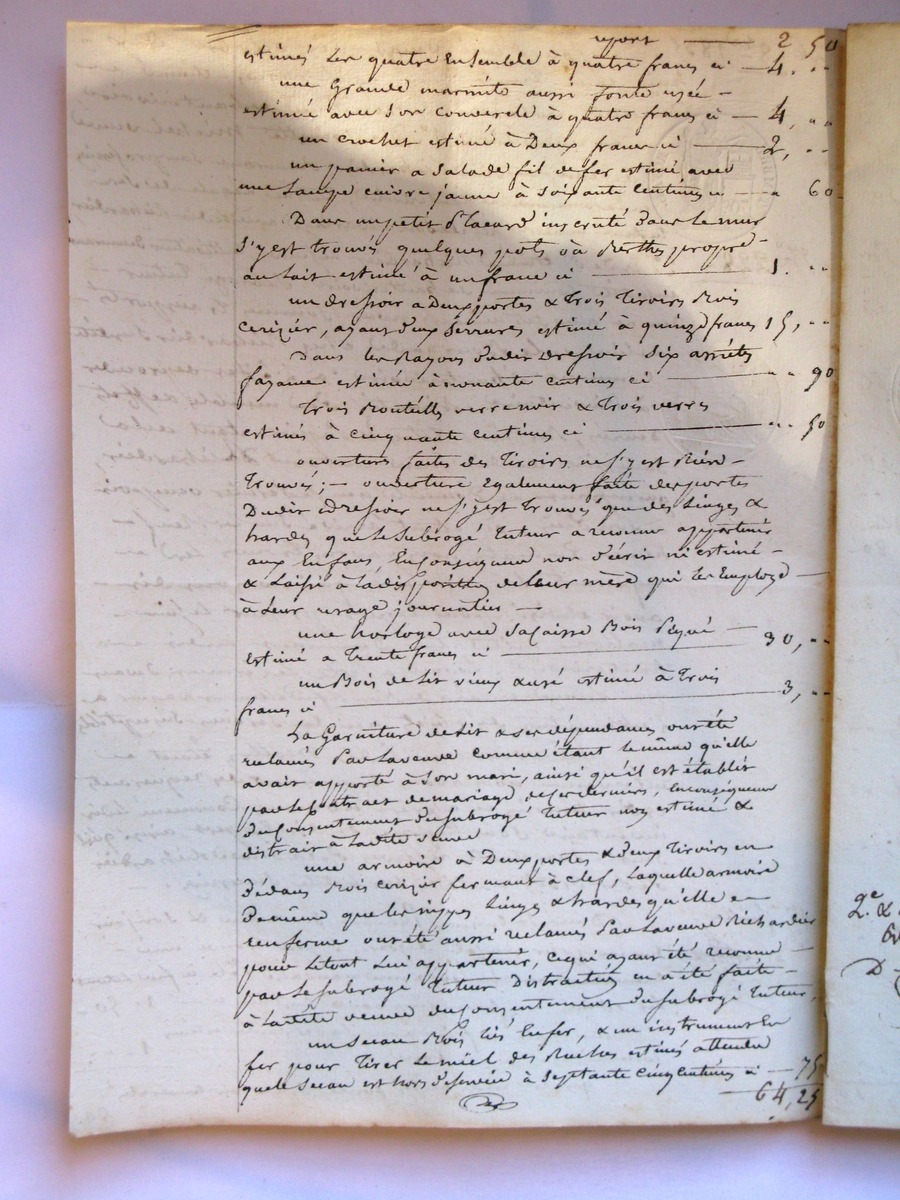 report — 2 50
estimés les quatre Ensemble à quatre francs ci — 4. "
une Grande marmite aussi fonte usée —
estimée avec son couvercle à quatre francs ci — 4, "
un crochet estimé à Deux francs ci — 2, "
un panier a salade fil de fer estimé avec
une Lampe cuivre jaune à soixante centimes ci — " 60
Dans un petit Placard incruté dans le mur
s'y est trouvés quelques pots à propre
au lait estimé à un franc ci — 1. "
un dressoir a Deux portes & Trois Tiroirs Bois
Cerizier, ayant deux serrures estimé à quinze francs 15, "
Dans les Rayons dudit Dressoir six assiettes
fayance estimée à nonante centimes ci — " 90
Trois Bouteilles verre noir & Trois verres
estimés à cinquante centimes ci — " 50
ouverture faites des Tiroirs ne s'y est Rien —
Trouvés; — ouverture Egalement faite des portes
Dudit dressoir ne s'y est Trouvés que des Linges &
hardes que le subrogé Tuteur a reconnu appartenir
aux Enfans, En conséquence non décrit ni estimé —
& Laissé à la disposition de leur mère qui les Employe —
à Leur usage journalier —
une horloge avec sa caisse Bois —
Estimé a Trente francs ci — 30, "
un Bois de Lit vieux & usé estimé à Trois
francs ci — 3, "
La Garniture de Lit & ses dépendances ont été
réclamés Par la veuve comme étant le même qu'elle
avait apporté à son mari, ainsi qu'il est établit
par le Contract de mariage de ces derniers, En conséquence
du consentement du subrogé Tuteur non estimé &
distrait à ladite veuve
une armoire à Deux portes & deux Tiroirs en
Dédans Bois cerizier fermant à clef, Laquelle armoire
De même que les nippes Linges & hardes qu'elle —
renferme ont été aussi réclamés Par la veuve Richardier
pour Le tout Lui appartenir, ce qui ayant été reconnu —
par le subrogé Tuteur Distraction en a été faite —
à Ladite veuve du consentement du subrogé Tuteur,
un seau Bois liés En fer, & un instrument En
fer pour Tirer Le miel des Ruches estimés attendu
que le seau est hors de service à septante cinq centimes ci — 75
64,25